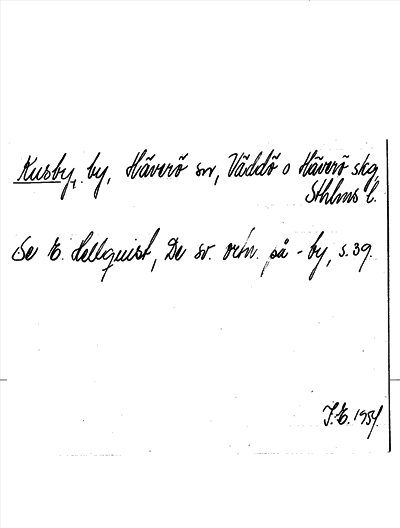 Kusby, by, Häverö sn, Väddö o Häverö skg,
Sthlms l.
Se E. Hellquist, De sv. ortn. på -by, s. 39.
J.E. 1954.